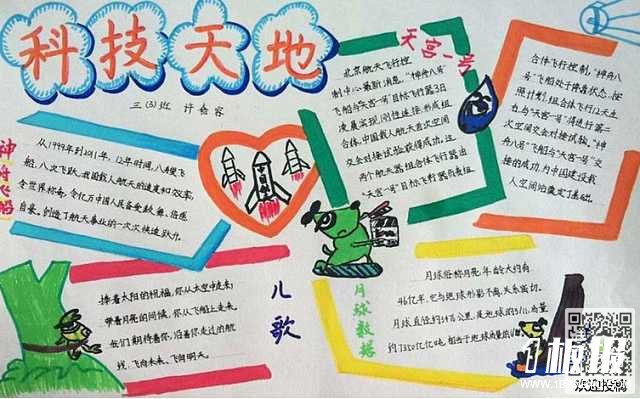 科技天地
三(3)班 许畅容
神舟飞船
从1999年到2011年,12年时间,八艘飞
船,八次飞跃,我国载人航天创造更加交客,
令世界称奇,令亿万中国人民备受鼓舞、倍感
自豪。创造了航天事业的一次次快速跃升。
天宫一号
北京航天飞行控
制中心最新消息,“神舟八号”
飞船与“天宫一号”目标飞行器3日
凌晨实现刚性连接,形成组
合体,中国载人航天首次空间
交会对接试验获得成功。这
两个航天器组合体飞行器由
“天宫一号”目标飞行器负责组
合体飞行控制,“神舟八
号”飞船处于停靠状态。按
照计划,组合体飞行12天左
右与“天宫一号”将进行第二
次空间交会对接试验。“神
舟八号”飞船与“天宫一号”交
接的成功,为中国建设载
人空间站奠定了基础。
中国航天
儿歌
捧着太阳的祝福,你从太空中走来;
带着月亮的问候,你从飞船上走来。
我们期待着你,沿着你走过的航
线,飞向未来、飞向明天。
月球数据
月球俗称月亮,年龄大约有
46亿年,它与地球形影不离,关系密切。
月球直径约3476公里,是地球的3/11,质量
约7350亿亿吨,相当于地球质量的1/81
板报
欢迎投稿